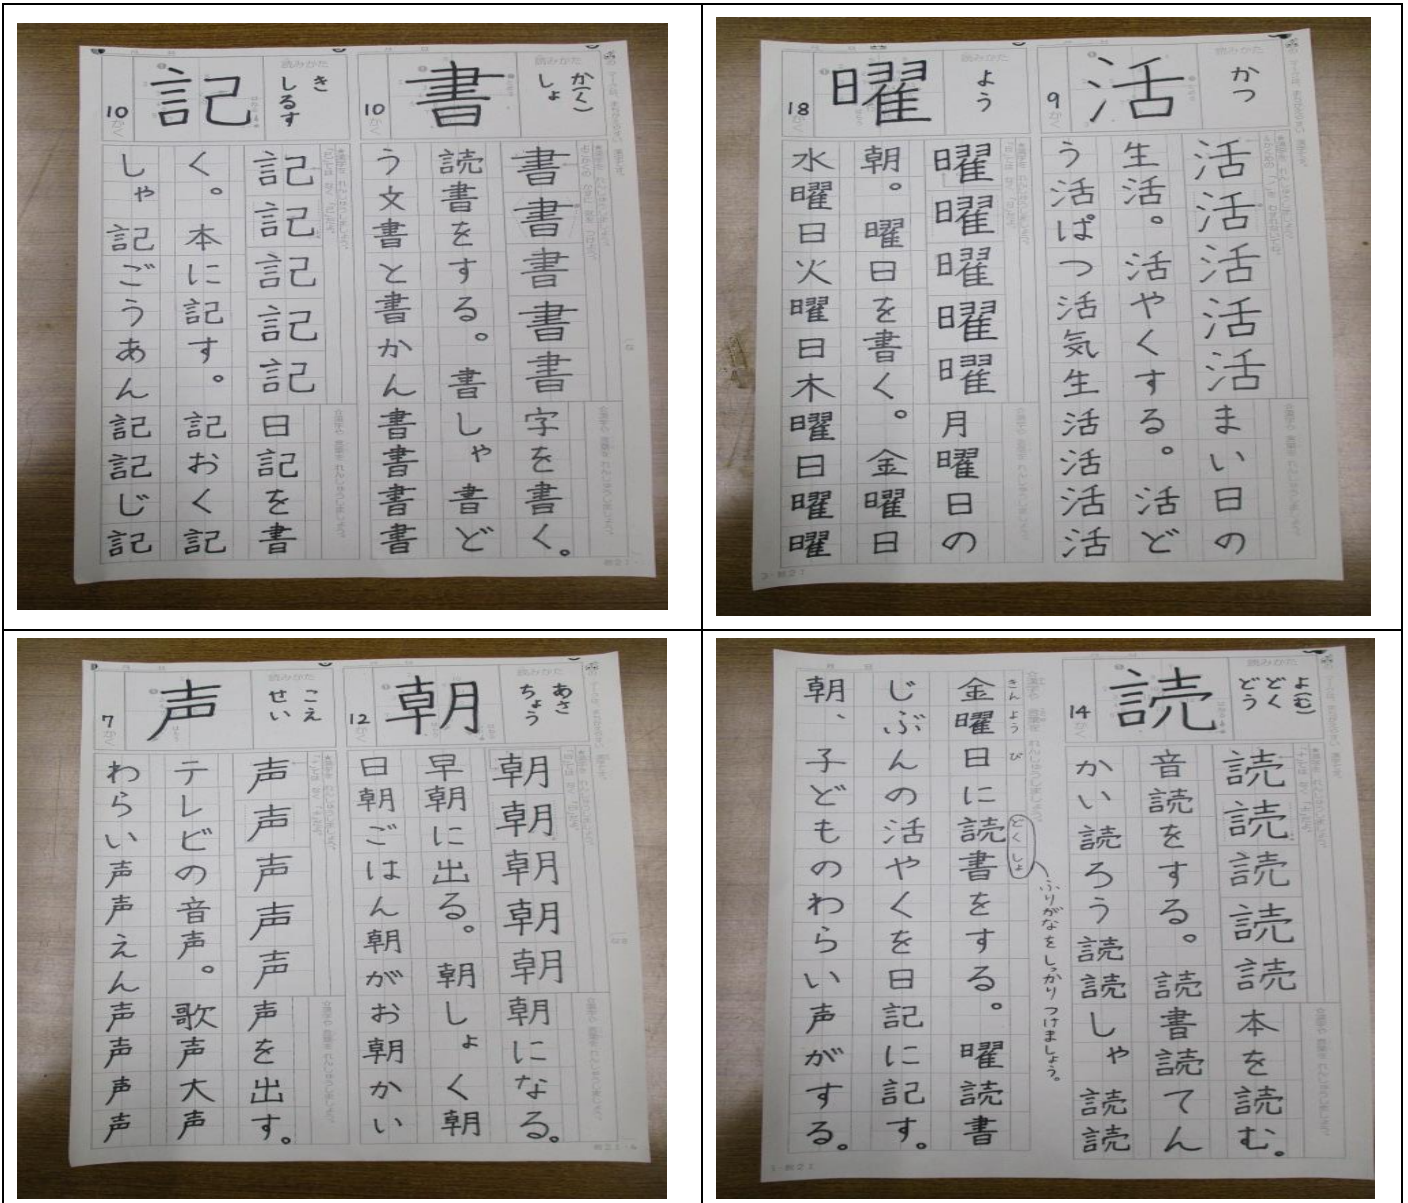 書
か(く)
しょ
10
かく
書書書書書字を書く。
読書をする。書しゃ書ど
う文書と書かん書書書書
記
き
しるす
10
かく
記記記記記日記を書
く。本に記す。記おく記
しゃ記ごうあん記記じ記
活
かつ
9
かく
活活活活活まい日の
生活。活やくする。活ど
う活ぱつ活気生活活活活
曜
よう
18
かく
曜曜曜曜曜月曜日の
朝。曜日を書く。金曜日
水曜日火曜日木曜日曜曜
朝
あさ
ちょう
12
かく
朝朝朝朝朝朝になる。
早朝に出る。朝しょく朝
日朝ごはん朝がお朝かい
声
こえ
せい
7
かく
声声声声声声を出す。
テレビの音声。歌声大声
わらい声声えん声声声声
読
よ(む)
どく
どう
14
かく
読みかた
読読読読読本を読む。
音読をする。読書読てん
かい読ろう読読しゃ読読
ふりがなをしっかりつけましょう。
きんようび どくしょ
金曜日に読書をする。曜読書
じぶんの活やくを日記に記す。
朝、子どものわらい声がする。